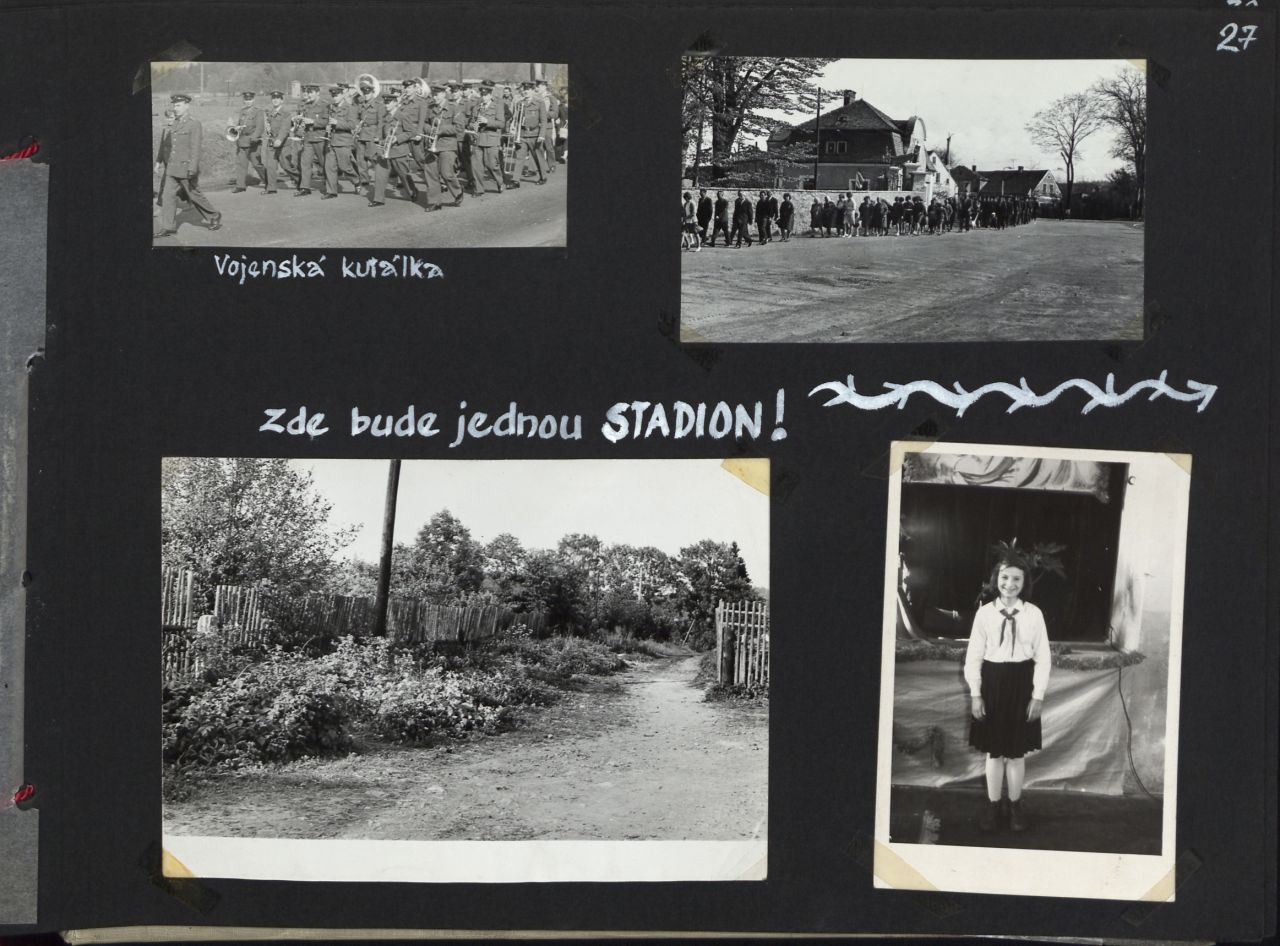 27
Vojenská kutálka
Zde bude jednou STADION!